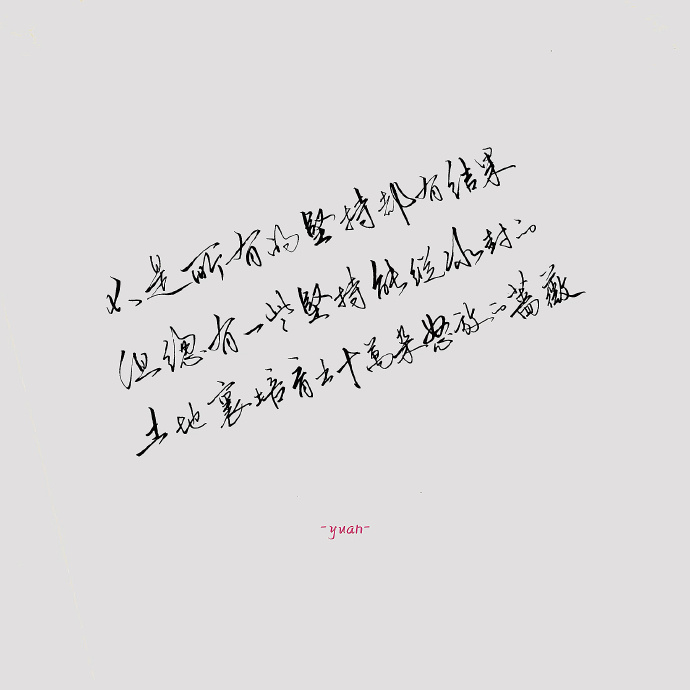 不是所有的堅持都有結果
但總有一些堅持能從冰封的
土地裏培育出十萬朵怒放的薔薇
-yuan-